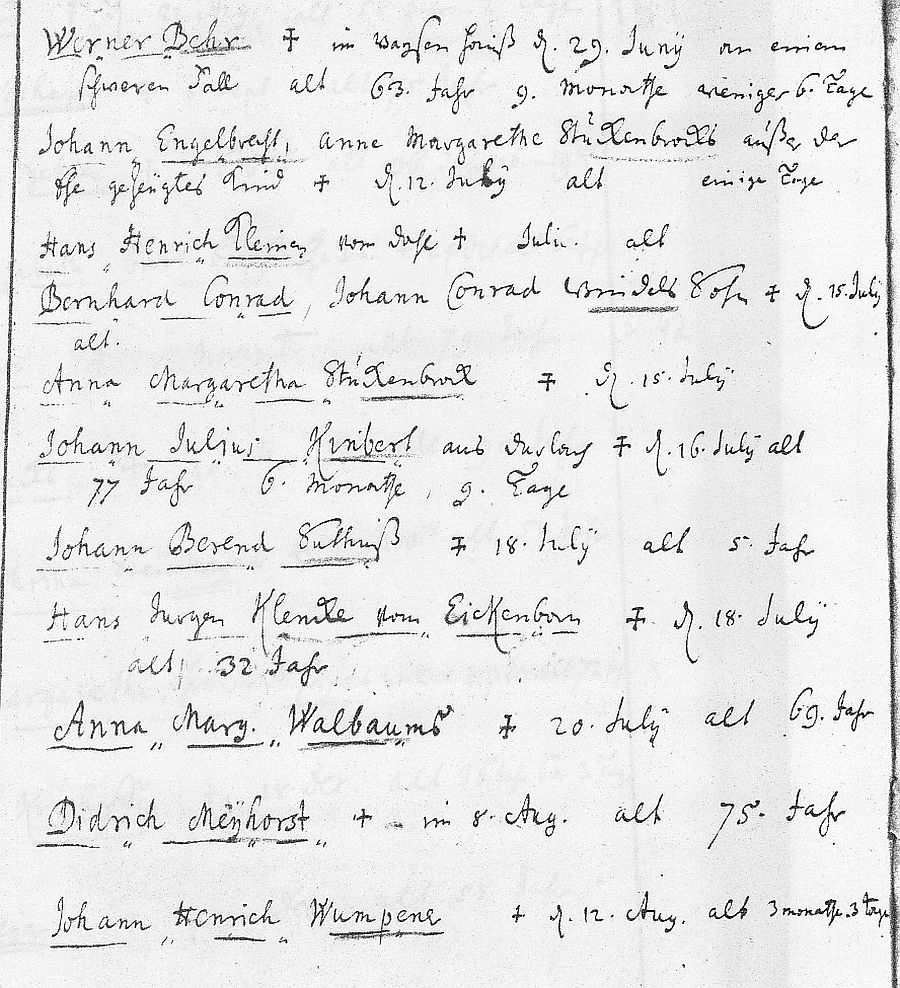 Werner Behr ‡ im waysen hauß d. 29. Juny an einem
schweren Fall alt 63. Jahr 9. Monathe weniger 6. Tage
Johann Engelbrecht, anne Margarethe Stückenbrocks außer der
Ehe gezeugtes Kind ‡ d. 12. July alt einige Tage
Hans Henrich vom + Julii. alt
Bernhard Conrad, Johann Conrad Sohn ‡ d. 15. July
alt.
Anna Margaretha Stückenbrock ‡ d. 15. July
Johann Julius aus ‡ d. 16. July alt
77 Jahr 6. Monathe, 9. Tage
Johann Berend ‡ 18. July alt 5. Jahr
Hans Jurgen Klencke vom Eickenborn ‡ d. 18. July
alt 32 Jahr
Anna Marg. Walbaums ‡ 20. July alt 69. Jahr
Didrich Meÿhorst + im 8. Aug. alt 75. Jahr
Johann Henrich Wumpene + d. 12. Aug. alt 3 monathe. 3 tage